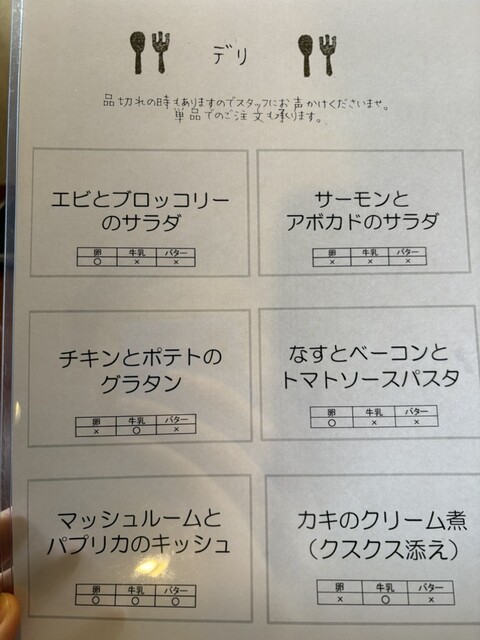 デリ
品切れの時もありますのでスタッフにお声かけくださいませ。
単品でのご注文も承ります。
エビとブロッコリー
のサラダ
卵 牛乳 バター
○ × ×
サーモンと
アボカドのサラダ
卵 牛乳 バター
× × ×
チキンとポテトの
グラタン
卵 牛乳 バター
× ○ ×
なすとベーコンと
トマトソースパスタ
卵 牛乳 バター
○ × ×
マッシュルームと
パプリカのキッシュ
卵 牛乳 バター
○ ○ ○
カキのクリーム煮
（クスクス添え）
卵 牛乳 バター
× ○ ×